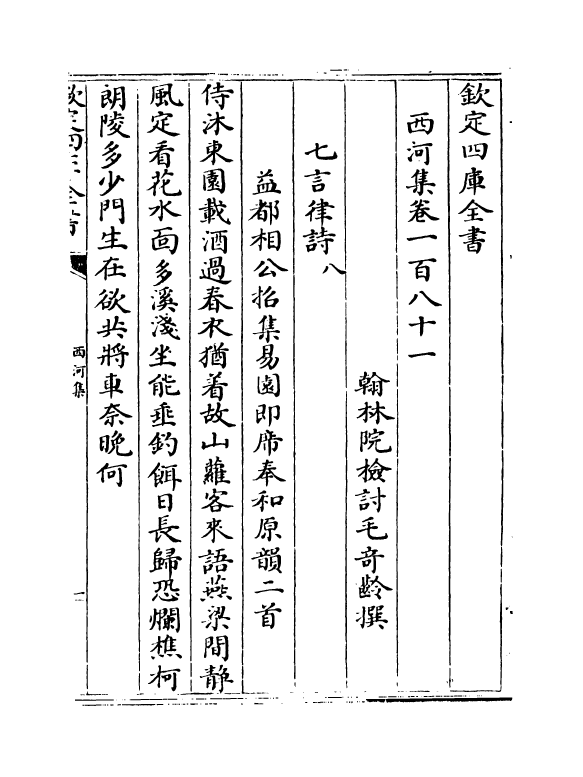 欽定四庫全書
西河集卷一百八十一
翰林院檢討毛奇齡撰
七言律詩八
益都相公招集易園即席奉和原韻二首
侍沐東園載酒過春衣猶着故山蘿客來語燕梁間静
風定看花水面多溪淺坐能垂釣餌日長歸恐爛樵柯
朗陵多少門生在欲共將車奈晚何
欽定四庫全書
西河集
一